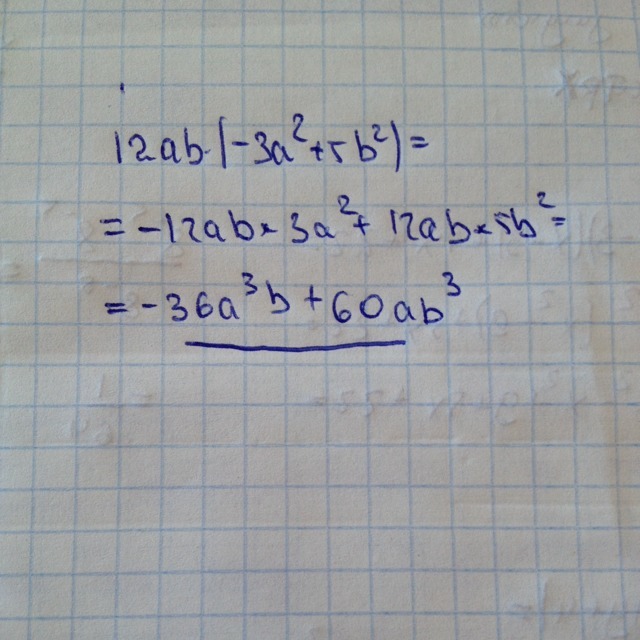 12ab·(-3a²+5b²)=
=-12ab×3a²+12ab×5b²=
=-36a³b+60ab³